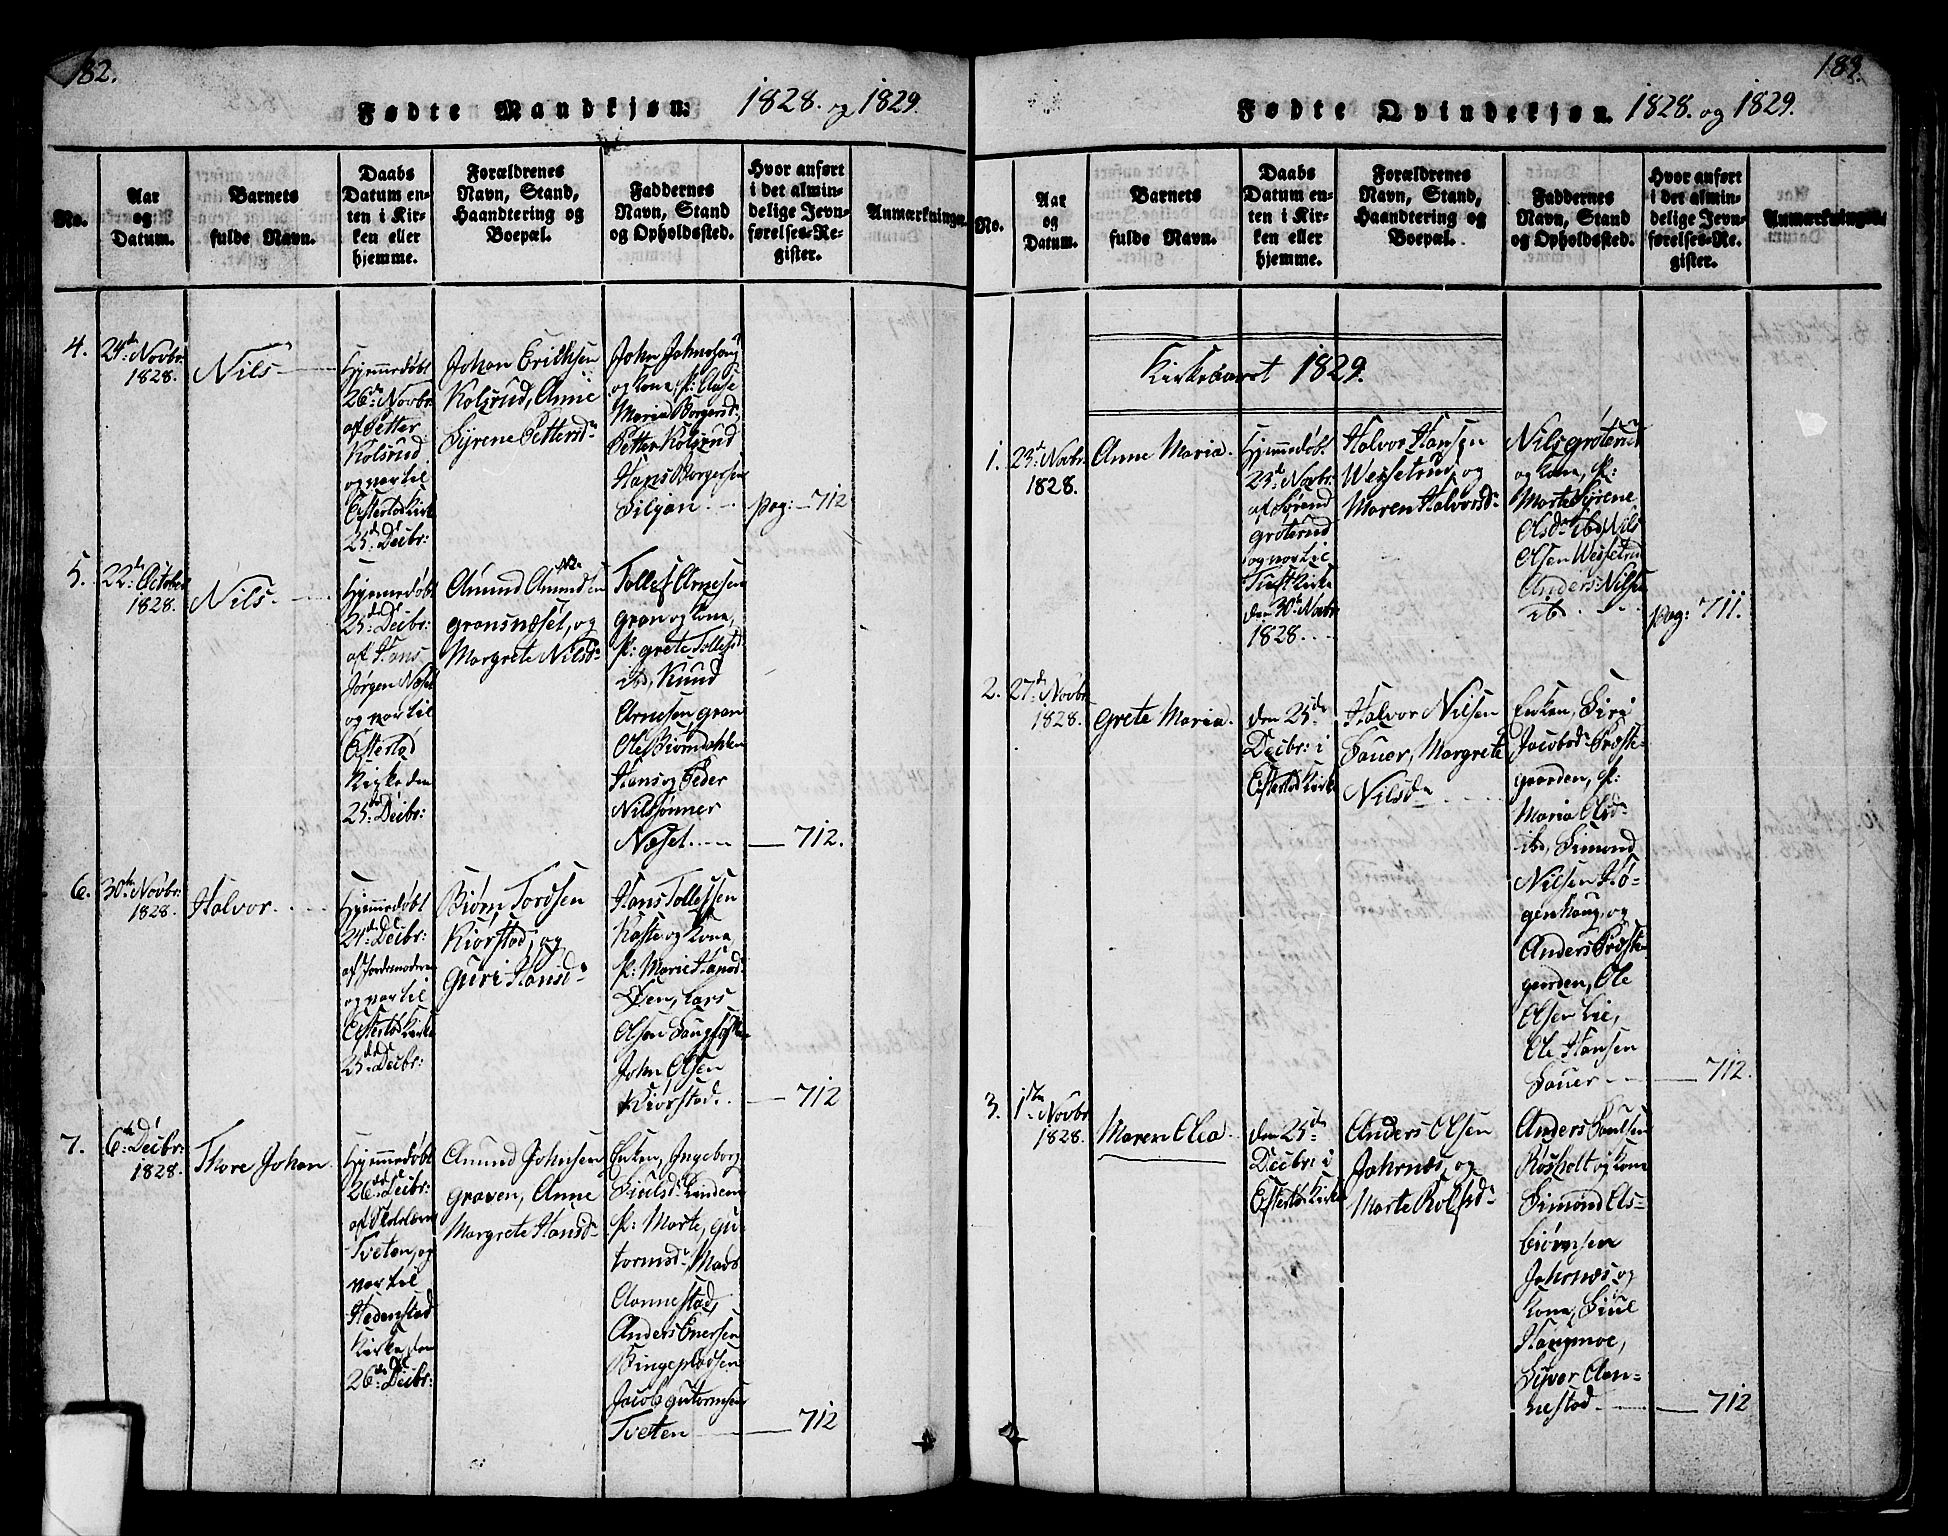 182.
Fødte Mandkjøn. 1828. og 1829.
No.
Aar
og
Datum.
Barnets
fulde Navn.
Daabs
Datum en-
ten i Kir-
ken eller
hjemme.
Forældrenes
Navn, Stand,
Haandtering og
Boepæl.
Faddernes
Navn, Stand
og Opholdssted.
Hvor anført
i det almin-
delige Jevn-
førelses-Re-
gister.
Anmærkninger.
4.
24de Novbr:
1828.
Nils
Hjemmedøbt
26de Novbr:
af Petter
Kolsrud
og var til
Efteløt Kirke
25de Decbr:
Johan Erichsen
Kolsrud, Anne
Syrene Pettersdr
John Johnshoug
og Kone, p: Aase
Maria Borgersdr
Petter Kolsrud
Hans Borgersen
Siljan
pag: 712
5.
22de October
1828.
Nils.
Hjemmedøbt
25de Decbr:
af Hans
Jørgen Næset
og var til
Efteløt
Kirke den
25de Decbr:
Amund Amundsen
gransnæset, og
Margrete Nilsdr
Tollef Arnesen
gran og Kone,
p: grete Tollefsdr
ibd, Knud
Arnesen gran
Ole Biørndahlen
Hans og Peder
Nilssønner
Næset.
712.
6.
30te Novbr:
1828.
Halvor.
Hjemmedøbt
24de Decbr:
af Jordemoderen
og var til
Efteløt Kirke
25de Decbr:
Biørn Tordsen
Kiørstad, og
Guri Hansdr
Hans Tollefsen
Kaste og Kone,
p: Marie Hansdr
Øen, Lars
Olsen
John Olsen
Kiørstad.
712
7.
6te Decbr:
1828.
Thore Johan
Hjemmedøbt
26de Decbr:
af Skolelærer
Tveten, og
var til
Hedenstad
Kirke, den
26de Decbr:
Amund Johnsen
Graven, Anne
Margrete Hansdr
Enken, Ingeborg
Sivilsdr Lindem
p: Marte, gu-
tormsdr Mads
Aannestad,
Anders Enersen
Ringepladsen
Jacob gutormsen
Tveten
712
183.
Fødte Qvindekjøn. 1828. og 1829.
No.
Aar
og
Datum.
Barnets
fulde Navn.
Daabs
Datum en-
ten i Kir-
ken eller
hjemme.
Forældrenes
Navn, Stand,
Haandtering og
Boepæl.
Faddernes
Navn, Stand
og Opholdssted.
Hvor anført
i det almin-
delige Jevn-
førelses-Re-
gister.
Anmærkninger.
Kirkeaaret 1829.
1.
23de Novbr:
1828.
Anne Maria.
Hjemmedøbt
23de Novbr:
af Srend
grøterud
og var til
Tuft Kirke
den 30te Novbr
1828.
Halvor Hansen
Wessetrud, og
Maren Halvorsdr
Nils grøterud
og Kone, p:
Marte Syrene
Olsdr ibd, Nils
Olsen Wessetrud
Anders Nilsen
ib
pag: 711.
2.
27de Novbr
1828.
Grete Maria.
den 25de
Decbr: i
Efteløt Kirke
Halvor Nilsen
Sauer, Margrete
Nilsdr
Enken, Siri
Jacobsdr Præste-
gaarden, p:
Maria Olsdr
ibd, Simond
Nilsen Hø-
genhoug, og
Anders Præste-
gaarden, Ole
Olsen Lie,
Ole Hansen
Sauer
712.
3.
1ste Novbr
1828.
Maren Olea.
den 25de
Decbr: i
Efteløt Kirke
Anders Olsen
Jahrnæs, og
Marte Rolfsdr
Anders Paulsen
Røsholt og Kone
Simond Els-
biørnsen
Jahrnæs og
Kone, Siul
Haugmoe,
Syver Aan-
nestad.
712